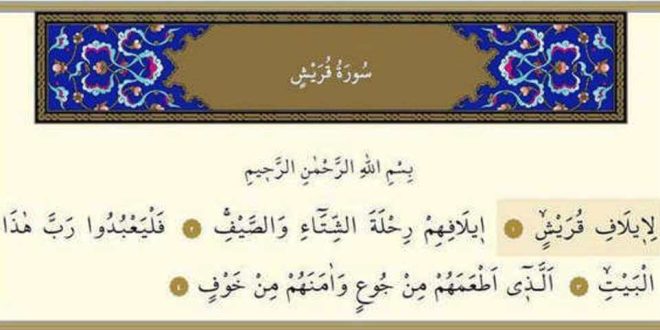 سُورَةُ قُرَيْشٍ
بِسْمِ اللهِ الرَّحْمٰنِ الرَّح۪يمِ
لِا۪يلَافِ قُرَيْشٍۙ ﴿١﴾ ا۪يلَافِهِمْ رِحْلَةَ الشِّتَٓاءِ وَالصَّيْفِۚ ﴿٢﴾ فَلْيَعْبُدُوا رَبَّ هٰذَا
الْبَيْتِۙ ﴿٣﴾ اَلَّذ۪ٓي اَطْعَمَهُمْ مِنْ جُوعٍ وَاٰمَنَهُمْ مِنْ خَوْفٍ ﴿٤﴾